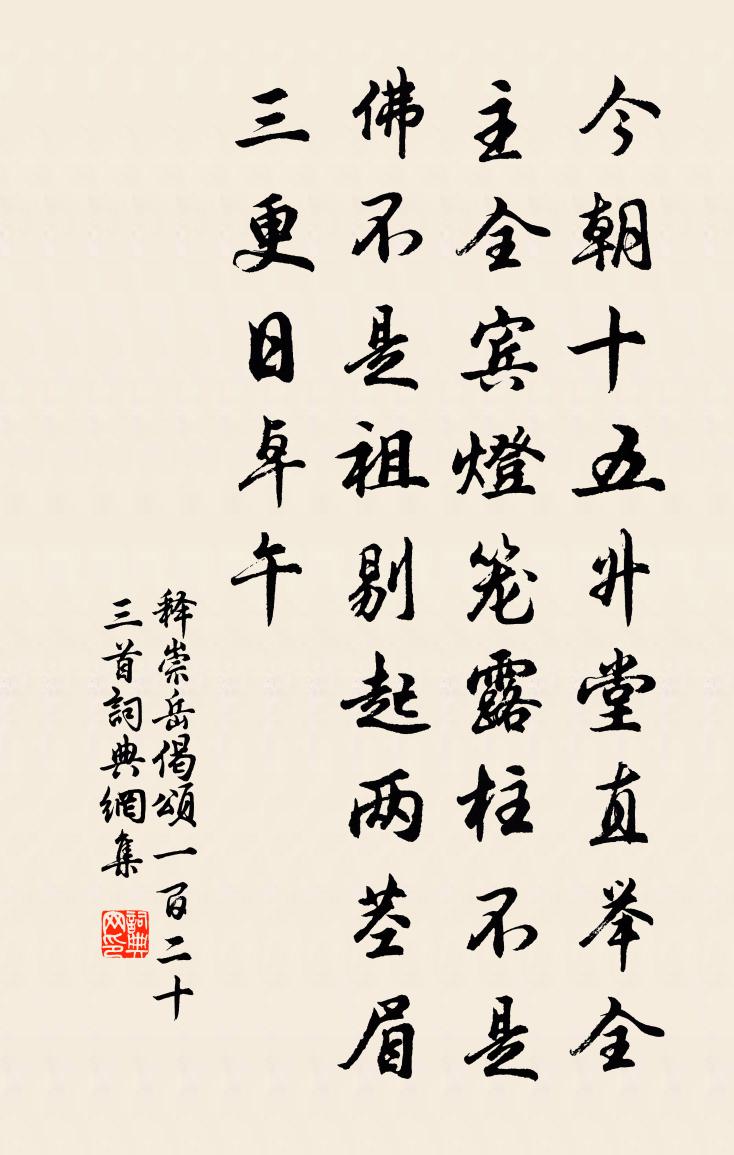 今朝十五升堂直举全
主全宾燈笼露柱不是
佛不是祖剔起两茎眉
三更日卓午
释崇岳偈頌一百二十
三首詞典網集
詞典网印